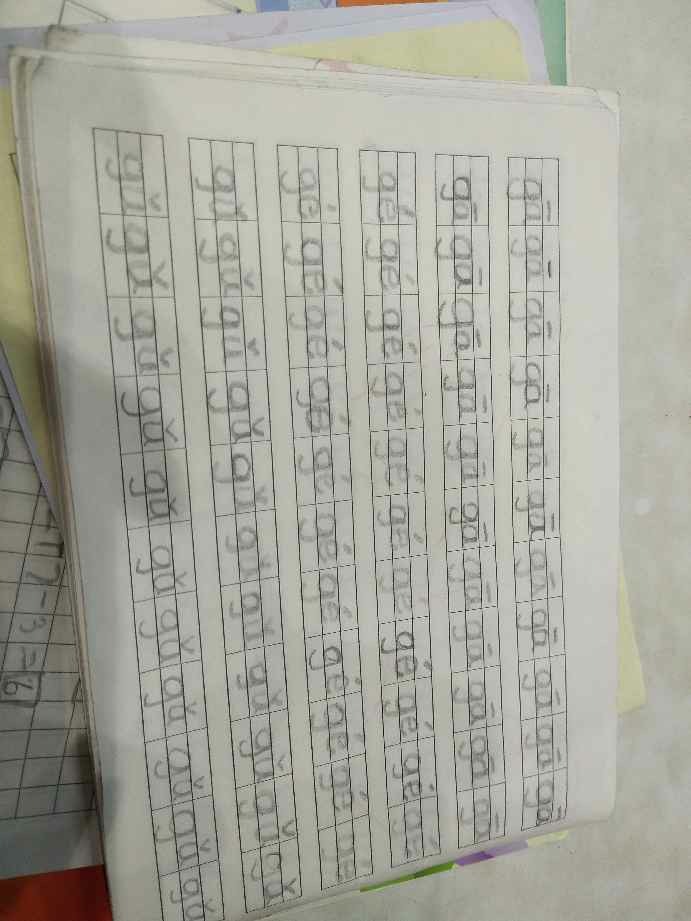 gā gā gā gā gā gā gā gā gā gā gā
gā gā gā gā gā gā gā gā gā gā gā
gé gé gé gé gé gé gé gé gé gé gé
gé gé gé gé gé gé gé gé gé gé gé
gǔ gǔ gǔ gǔ gǔ gǔ gǔ gǔ gǔ gǔ gǔ
gǔ gǔ gǔ gǔ gǔ gǔ gǔ gǔ gǔ gǔ gǔ